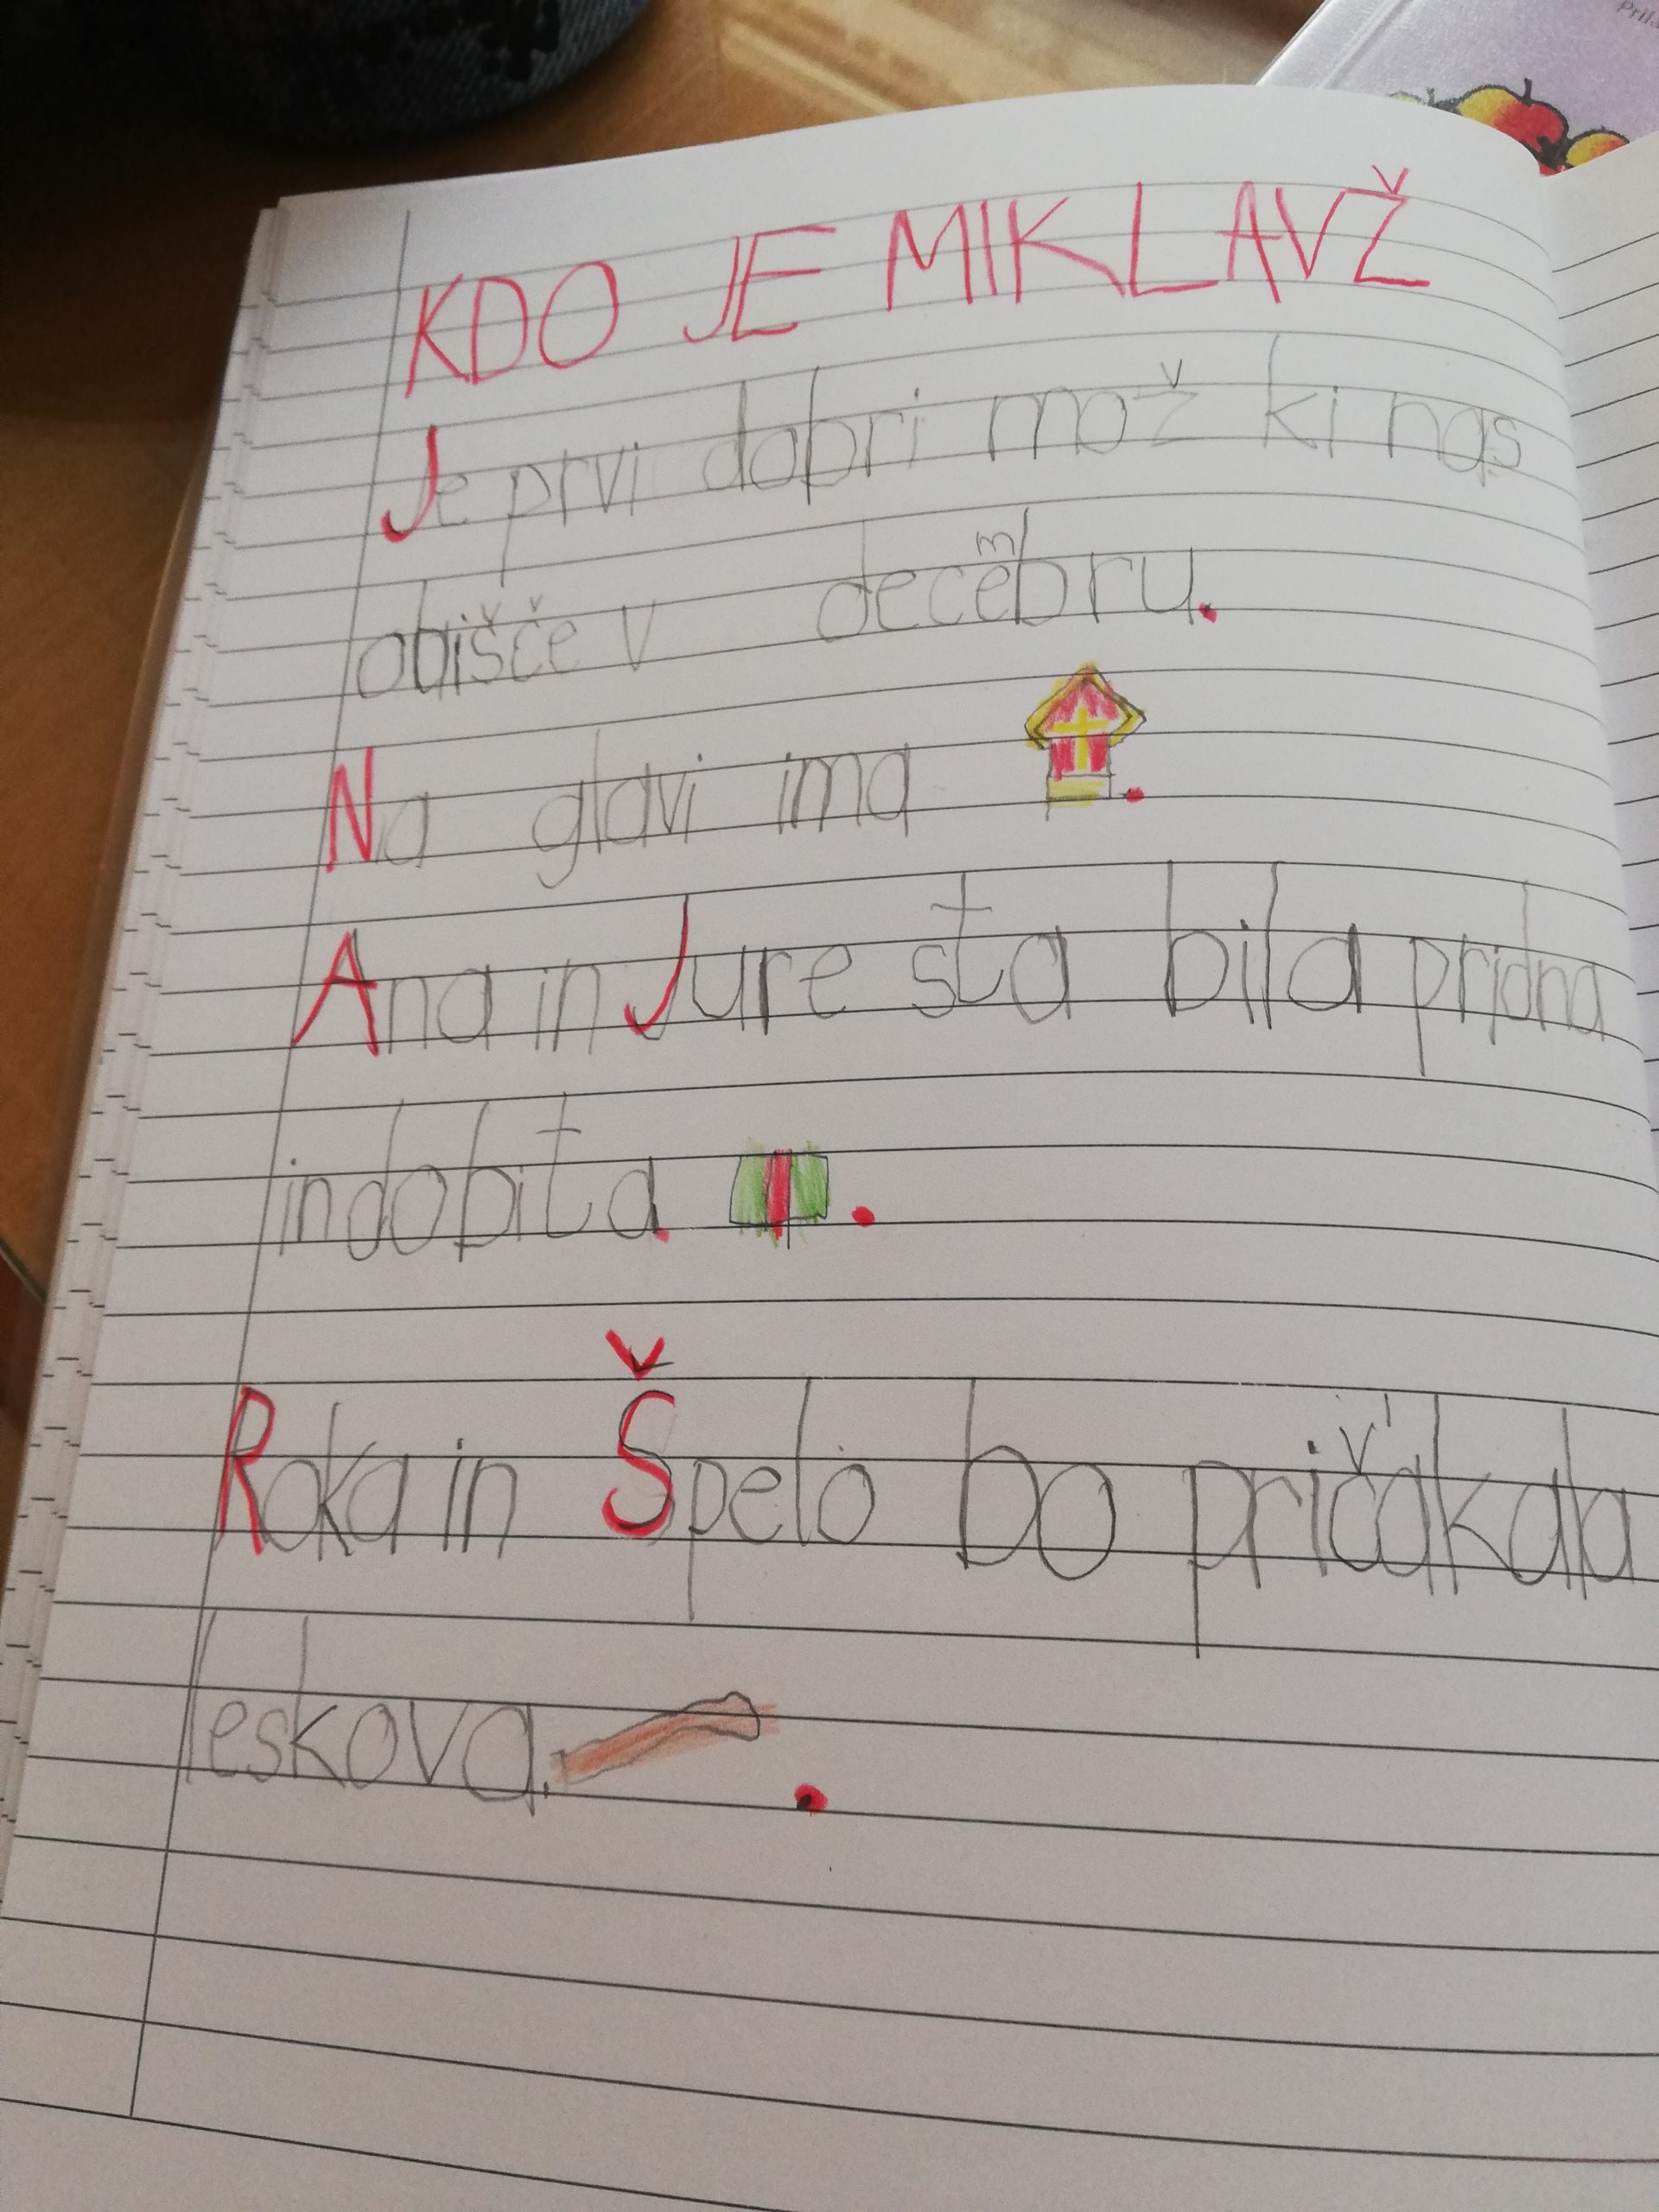 KDO JE MIKLAVŽ
Je prvi dobri mož ki nas
obišče v decembru.
Na glavi ima .
Ana in Jure sta bila pridna
in dobita. .
Roka in Špelo bo pričakala
leskova. .